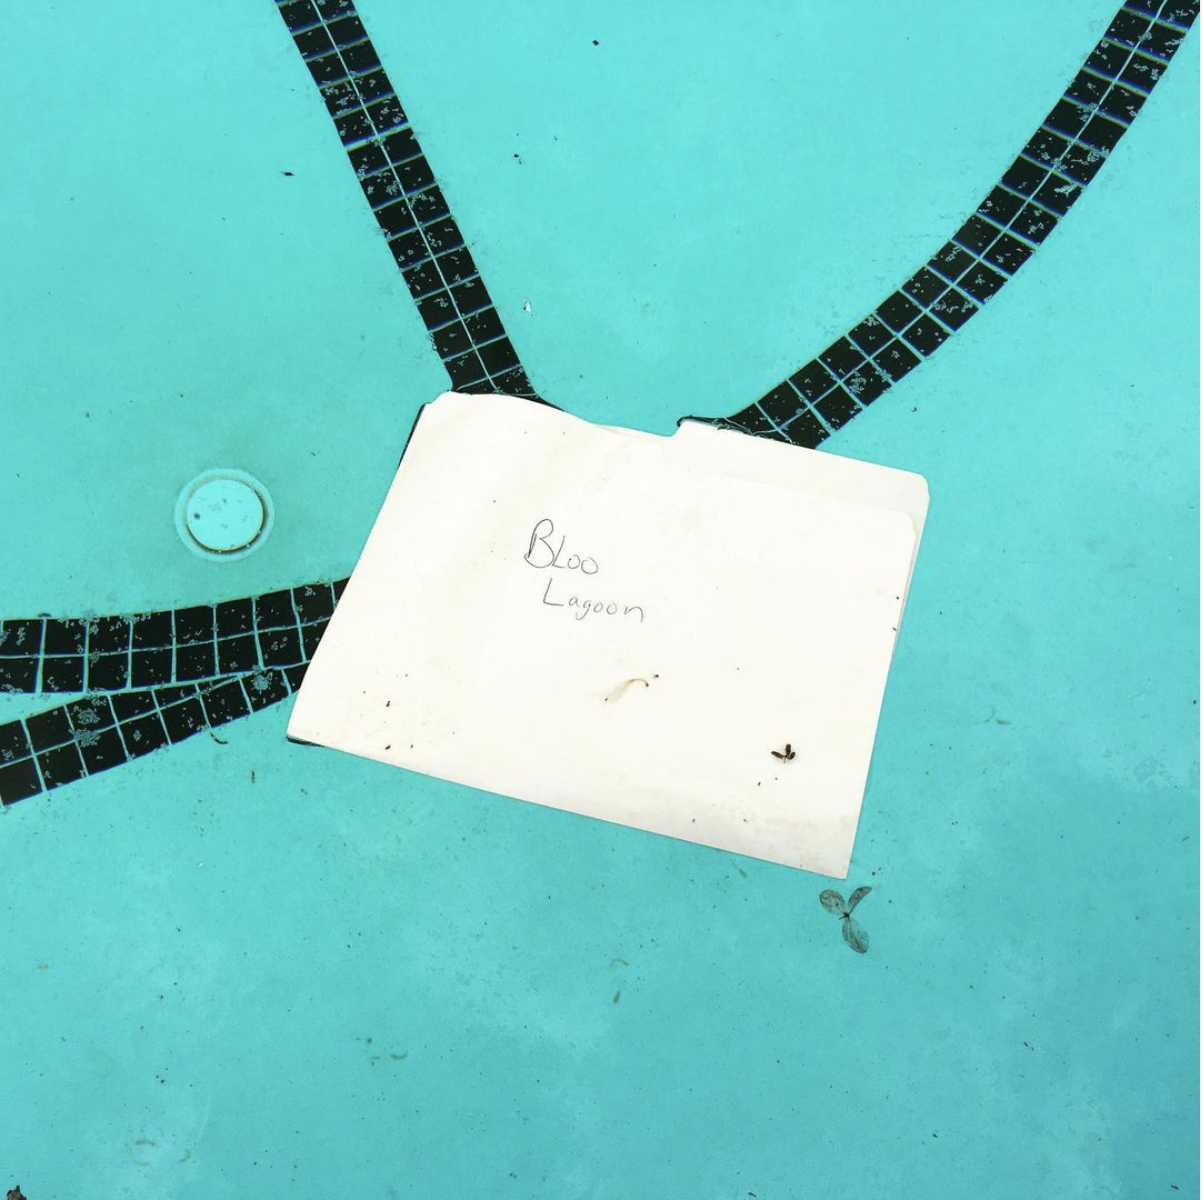 Bloo
Lagoon